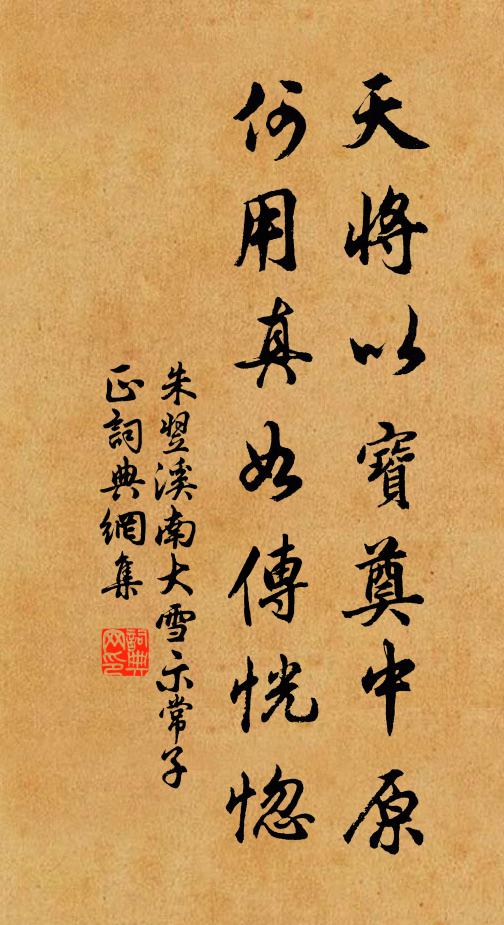 天將以寶奠中原
何用真如傳恍惚
朱翌溪南大雪示常子
正詞典網集
詞典網印